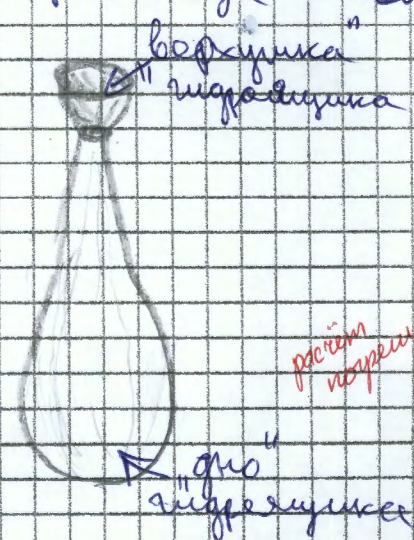 „верхушка"
гидроящика
расчёт
погреш
„дно"
гидроящика